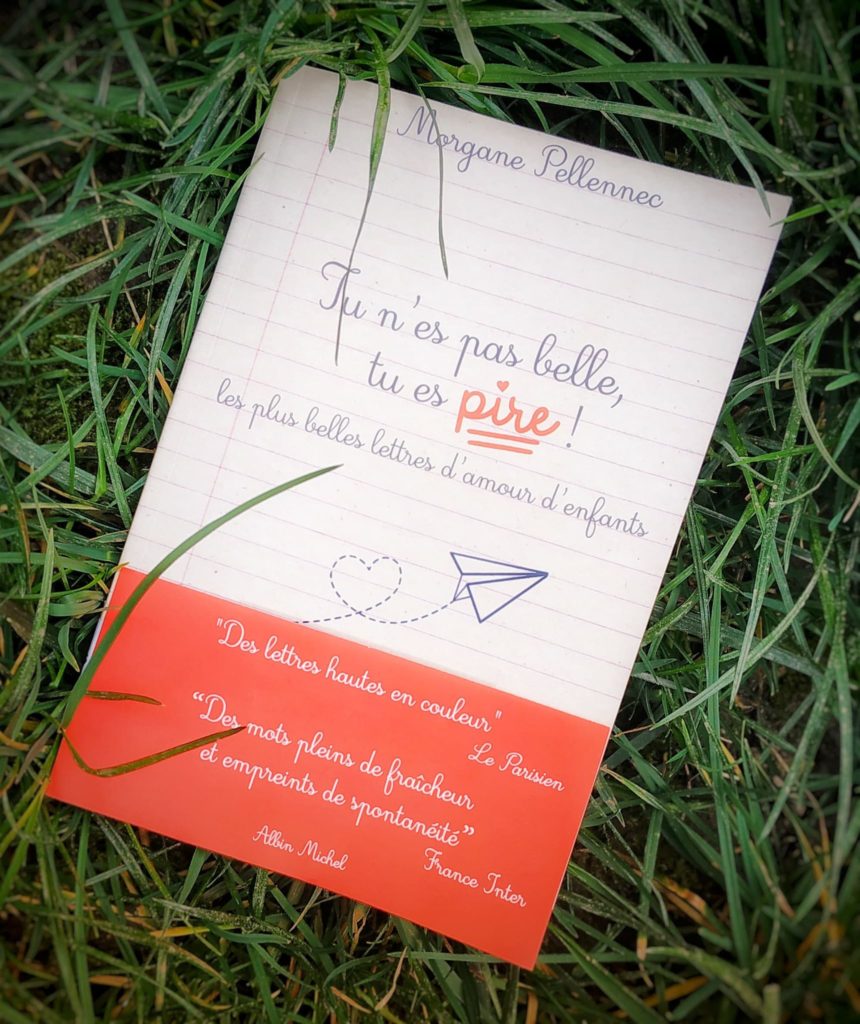 Morgane Pellennec
Tu n'es pas belle,
tu es pire !
les plus belles lettres d'amour d'enfants
"Des lettres hautes en couleur"
Le Parisien
“Des mots pleins de fraîcheur
et empreints de spontanéité”
France Inter
Albin Michel